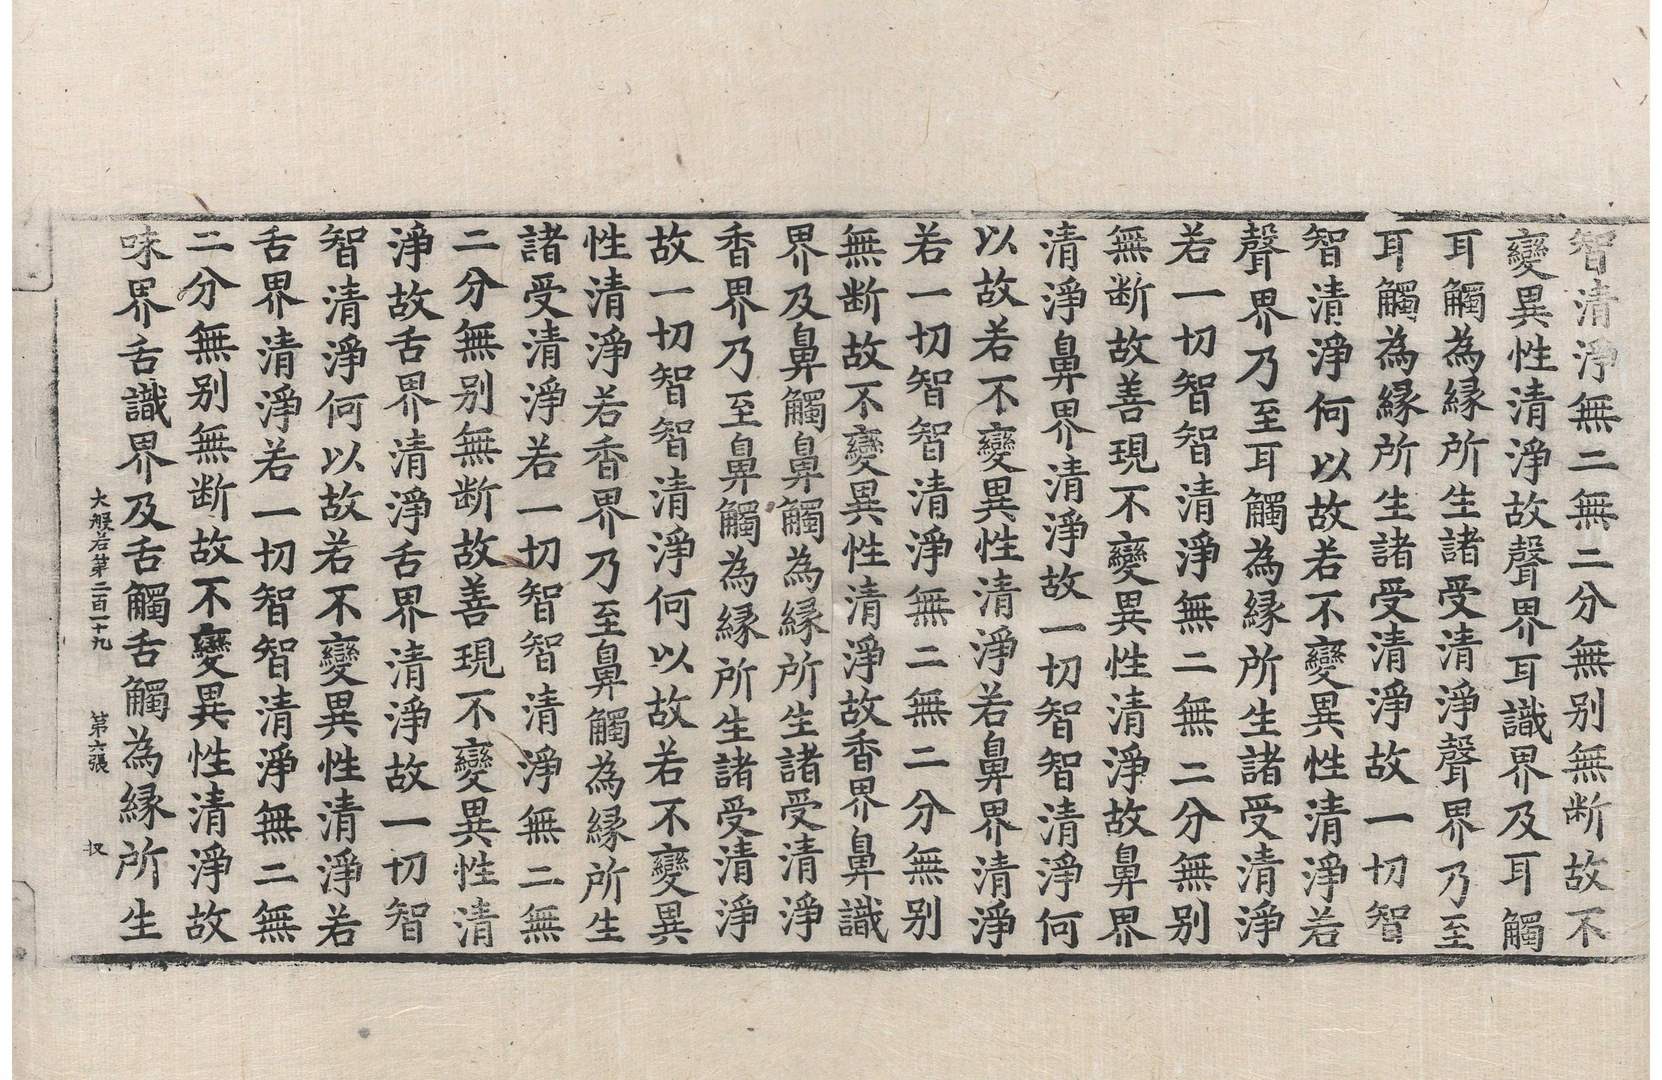 智清淨無二無二分無别無断故不
變異性清淨故聲界耳識界及耳觸
耳觸為縁所生諸受清淨聲界乃至
耳觸為縁所生諸受清淨故一切智
智清淨何以故若不變異性清淨若
聲界乃至耳觸為縁所生諸受清淨
若一切智智清淨無二無二分無别
無断故善現不變異性清淨故鼻界
清淨鼻界清淨故一切智智清淨何
以故若不變異性清淨若鼻界清淨
若一切智智清淨無二無二分無别
無断故不變異性清淨故香界鼻識
界及鼻觸鼻觸為縁所生諸受清淨
香界乃至鼻觸為縁所生諸受清淨
故一切智智清淨何以故若不變異
性清淨若香界乃至鼻觸為縁所生
諸受清淨若一切智智清淨無二無
二分無别無断故善現不變異性清
淨故舌界清淨舌界清淨故一切智
智清淨何以故若不變異性清淨若
舌界清淨若一切智智清淨無二無
二分無别無断故不變異性清淨故
味界舌識界及舌觸舌觸為縁所生
大般若第二百一十九 第六張 収